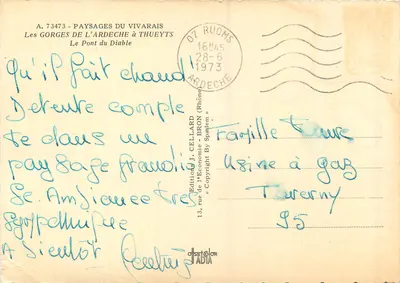 A. 73473 - PAYSAGES DU VIVARAIS
Les GORGES DE L'ARDECHE à THUEYTS
Le Pont du Diable
07 RUOMS
16H45
28-6
1973
ARDECHE
Qu'il fait chaud!
Détente complè
te dans un
paysage grandio
se. Ambiance très
sympathique
A bientôt
Editions J. CELLARD
13, rue de l'Economie - BRON (Rhône)
" Copyright By Spadem "
Famille
Usine à gaz
Taverny
95